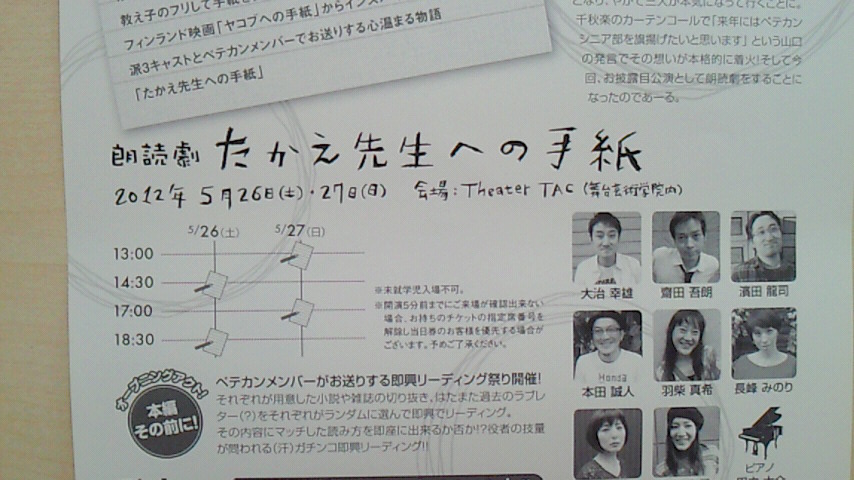 教え子のフリして手紙を
フィンランド映画「ヤコブへの手紙」からインス
派3キャストとペテカンメンバーでお送りする心温まる物語
「たかえ先生への手紙」
千秋楽のカーテンコールで「来年にはペテカン
シニア部を旗揚げたいと思います」という山口
の発言でその想いが本格的に着火!そして今
回、お披露目公演として朗読劇をすることに
なったのであーる。
朗読劇 たかえ先生への手紙
2012年 5月26日(土)・27日(日) 会場:Theater TAC(舞台芸術学院内)
5/26(土) 5/27(日)
13:00
14:30
17:00
18:30
※未就学児入場不可。
※開演5分前までにご来場が確認出来ない
場合、お持ちのチケットの指定席番号を
解除し当日券のお客様を優先する場合が
ございます。予めご了承ください。
大治 幸雄 齋田 吾朗 濱田 龍司
Honda
本田 誠人 羽柴 真希 長峰 みのり
ピアノ
オープニングアクト!
本編
その前に!
ペテカンメンバーがお送りする即興リーディング祭り開催!
それぞれが用意した小説や雑誌の切り抜き、はたまた過去のラブレ
ター(?)をそれぞれがランダムに選んで即興でリーディング。
その内容にマッチした読み方を即座に出来るか否か!?役者の技量
が問われる(汗)ガチンコ即興リーディング!!